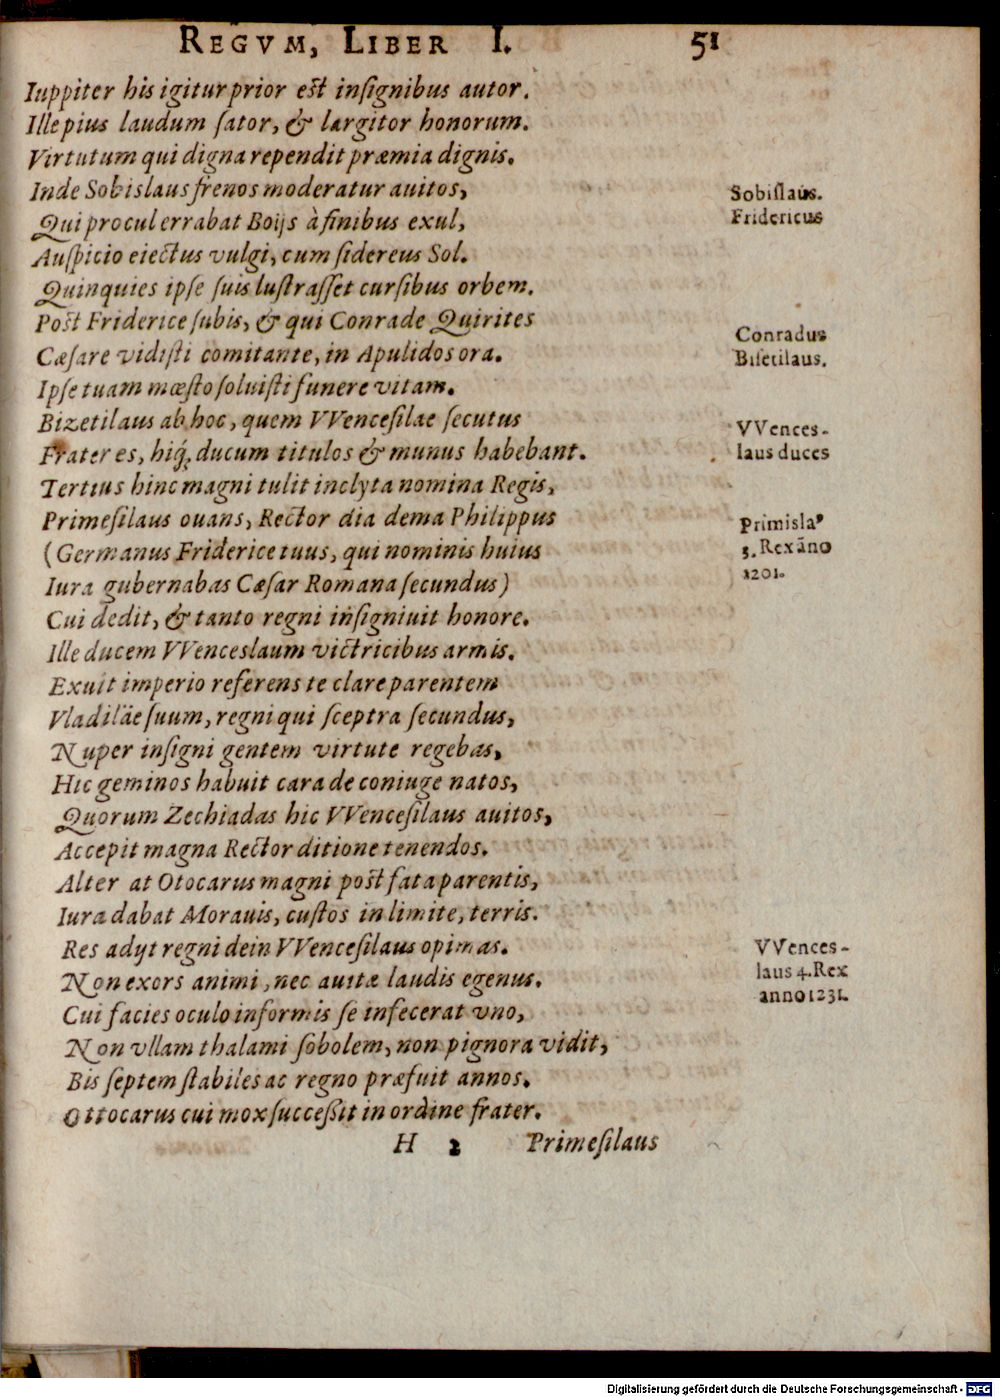 REGVM, LIBER I. 51
Iuppiter his igitur prior est insignibus autor.
Ille pius laudum sator, & largitor honorum.
Virtutum qui digna rependit præmia dignis.
Inde Sobislaus frenos moderatur auitos,
Sobislaus.
Qui procul errabat Boijs à finibus exul,
Fridericus
Auspicio eiectus vulgi, cum sidereus Sol.
Quinquies ipse suis lustrasset cursibus orbem.
Post Friderice subis, & qui Conrade Quirites
Conradus
Cæsare vidisti comitante, in Apulidos ora.
Bisetilaus.
Ipse tuam mœsto soluisti funere vitam.
Bizetilaus ab hoc, quem VVencesilae secutus
VVences-
Frater es, hiq́; ducum titulos & munus habebant.
laus duces
Tertius hinc magni tulit inclyta nomina Regis,
Primesilaus ouans, Rector dia dema Philippus
Primisla⁹
(Germanus Friderice tuus, qui nominis huius
3. Rex āno
Iura gubernabas Cæsar Romana secundus)
1201.
Cui dedit, & tanto regni insigniuit honore.
Ille ducem VVenceslaum victricibus armis.
Exuit imperio referens te clare parentem
Vladiläe suum, regni qui sceptra secundus,
Nuper insigni gentem virtute regebas,
Hic geminos habuit cara de coniuge natos,
Quorum Zechiadas hic VVencesilaus auitos,
Accepit magna Rector ditione tenendos.
Alter at Otocarus magni post fata parentis,
Iura dabat Morauis, custos in limite, terris.
Res adijt regni dein VVencesilaus opimas.
VVences-
Non exors animi, nec auitæ laudis egenus.
laus 4. Rex
Cui facies oculo informis se infecerat vno,
anno 1231.
Non vllam thalami sobolem, non pignora vidit,
Bis septem stabiles ac regno præfuit annos.
Ottocarus cui mox successit in ordine frater.
H 2 Primesilaus
Digitalisierung gefördert durch die Deutsche Forschungsgemeinschaft - DFG